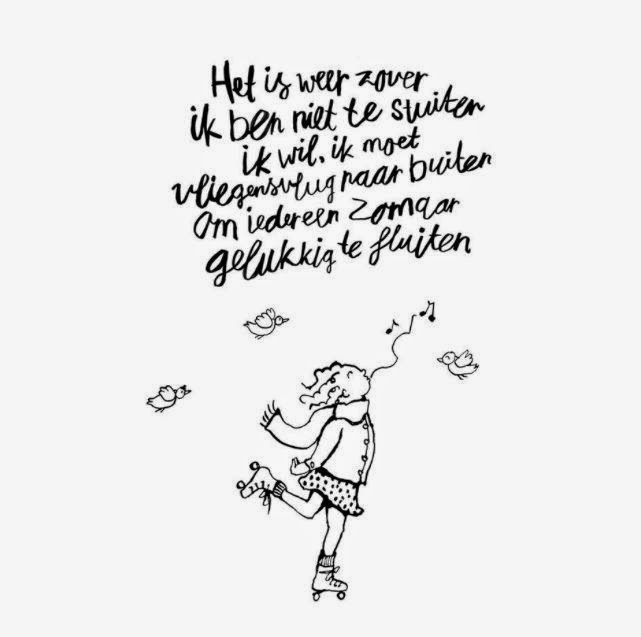 Het is weer zover
ik ben niet te stuiten
ik wil, ik moet
vliegensvlug naar buiten
om iedereen zomaar
gelukkig te fluiten